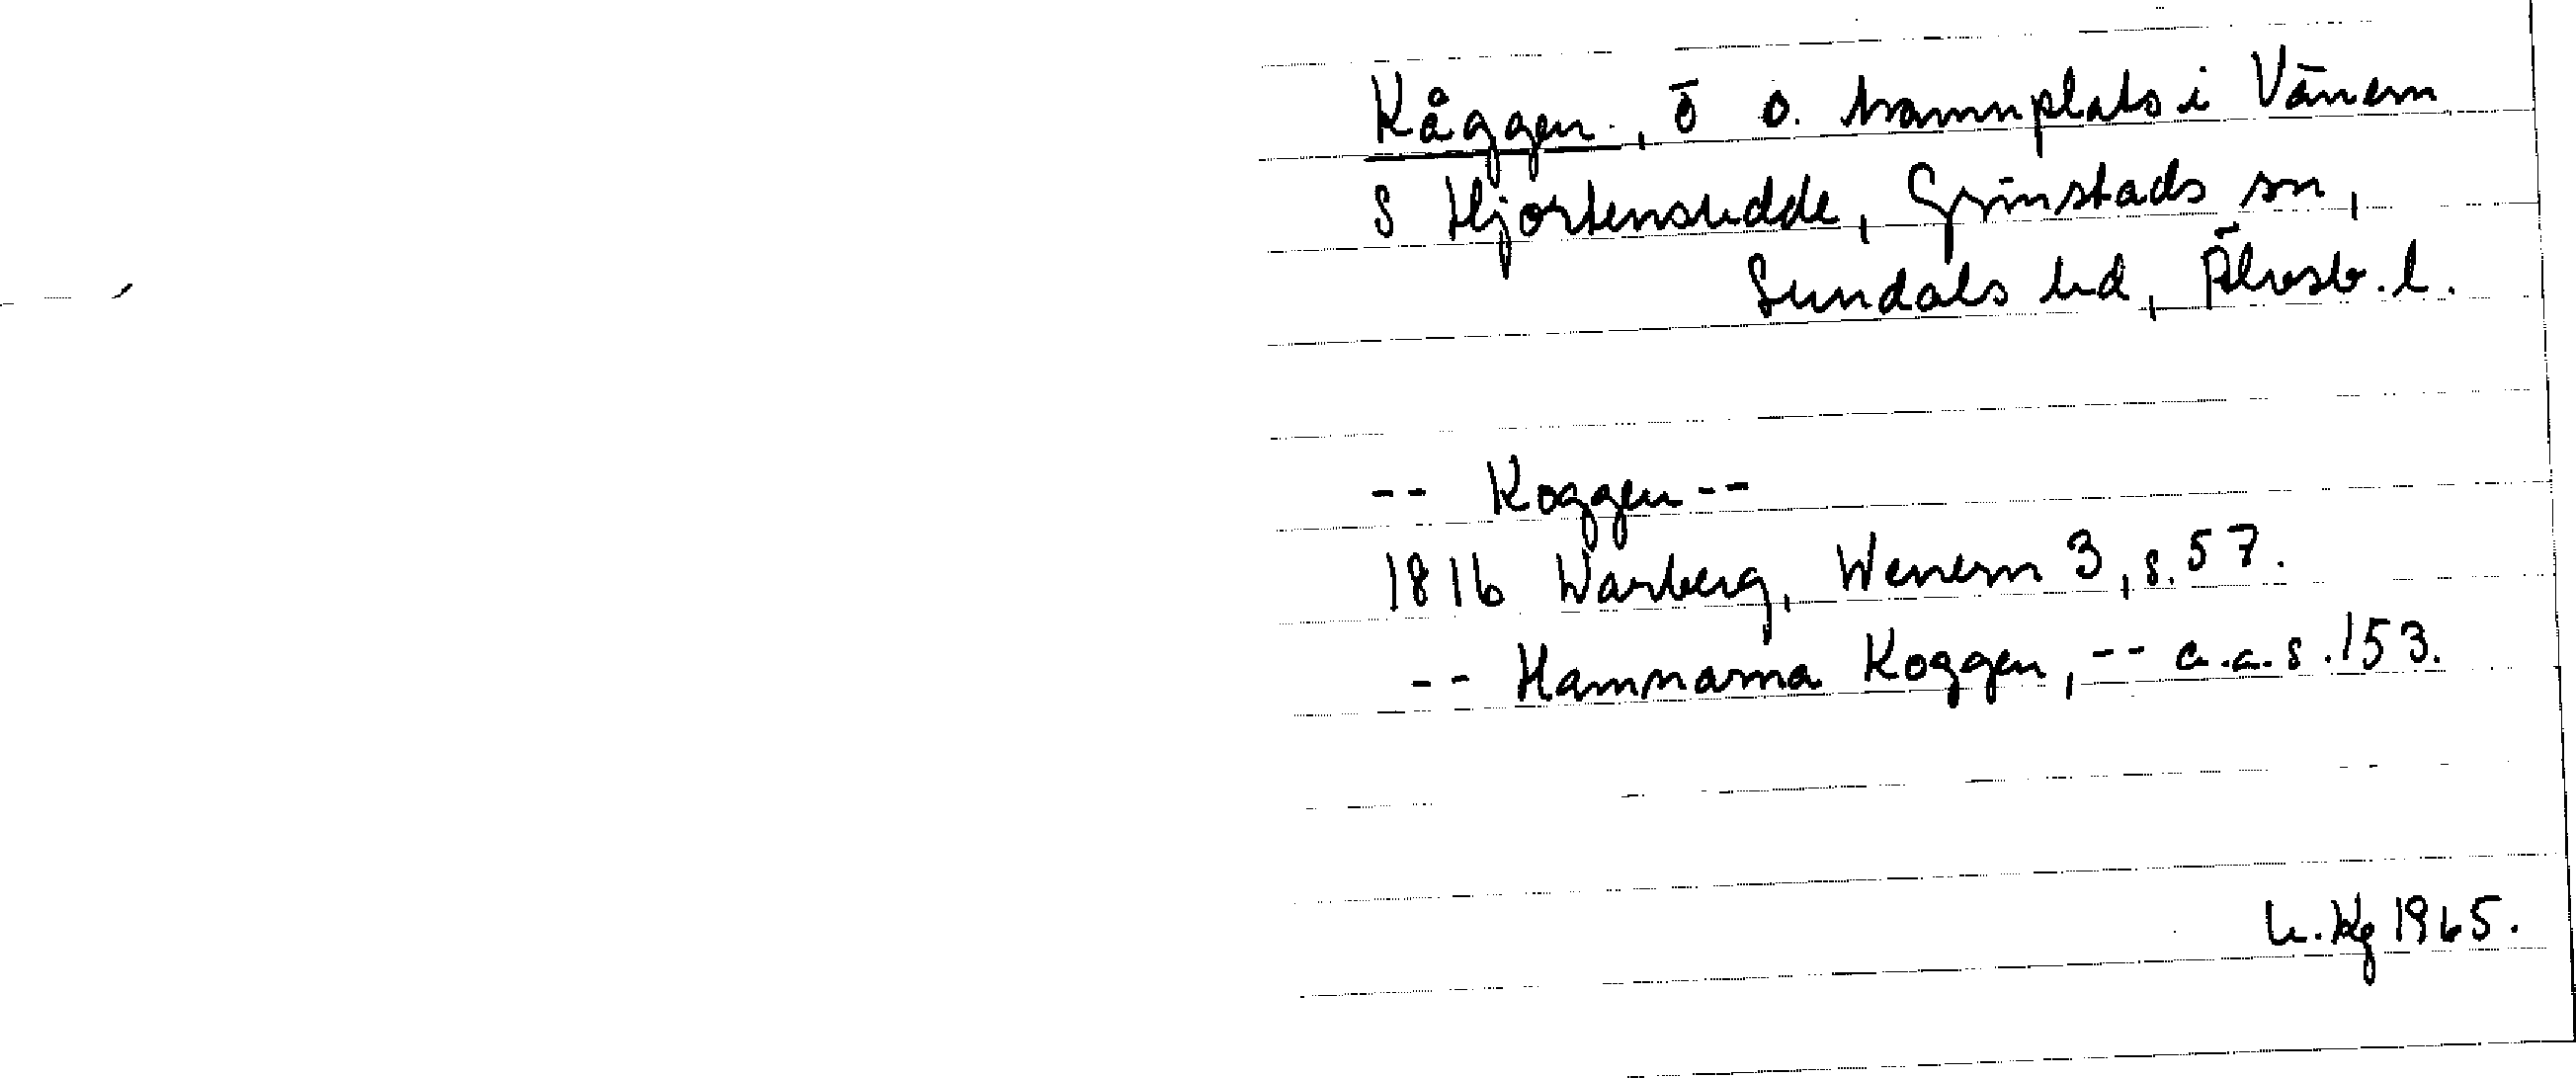 Kåggen, ö o. hamnplats i Vänern
S Hjortensudde, Grinstads sn,
Sundals hd, Älvsb. l.
-- Koggen --
1816 Warberg, Wenern 3, s. 57.
-- Hamnarna Koggen, -- a.a.s. 153.
Kg 1965.